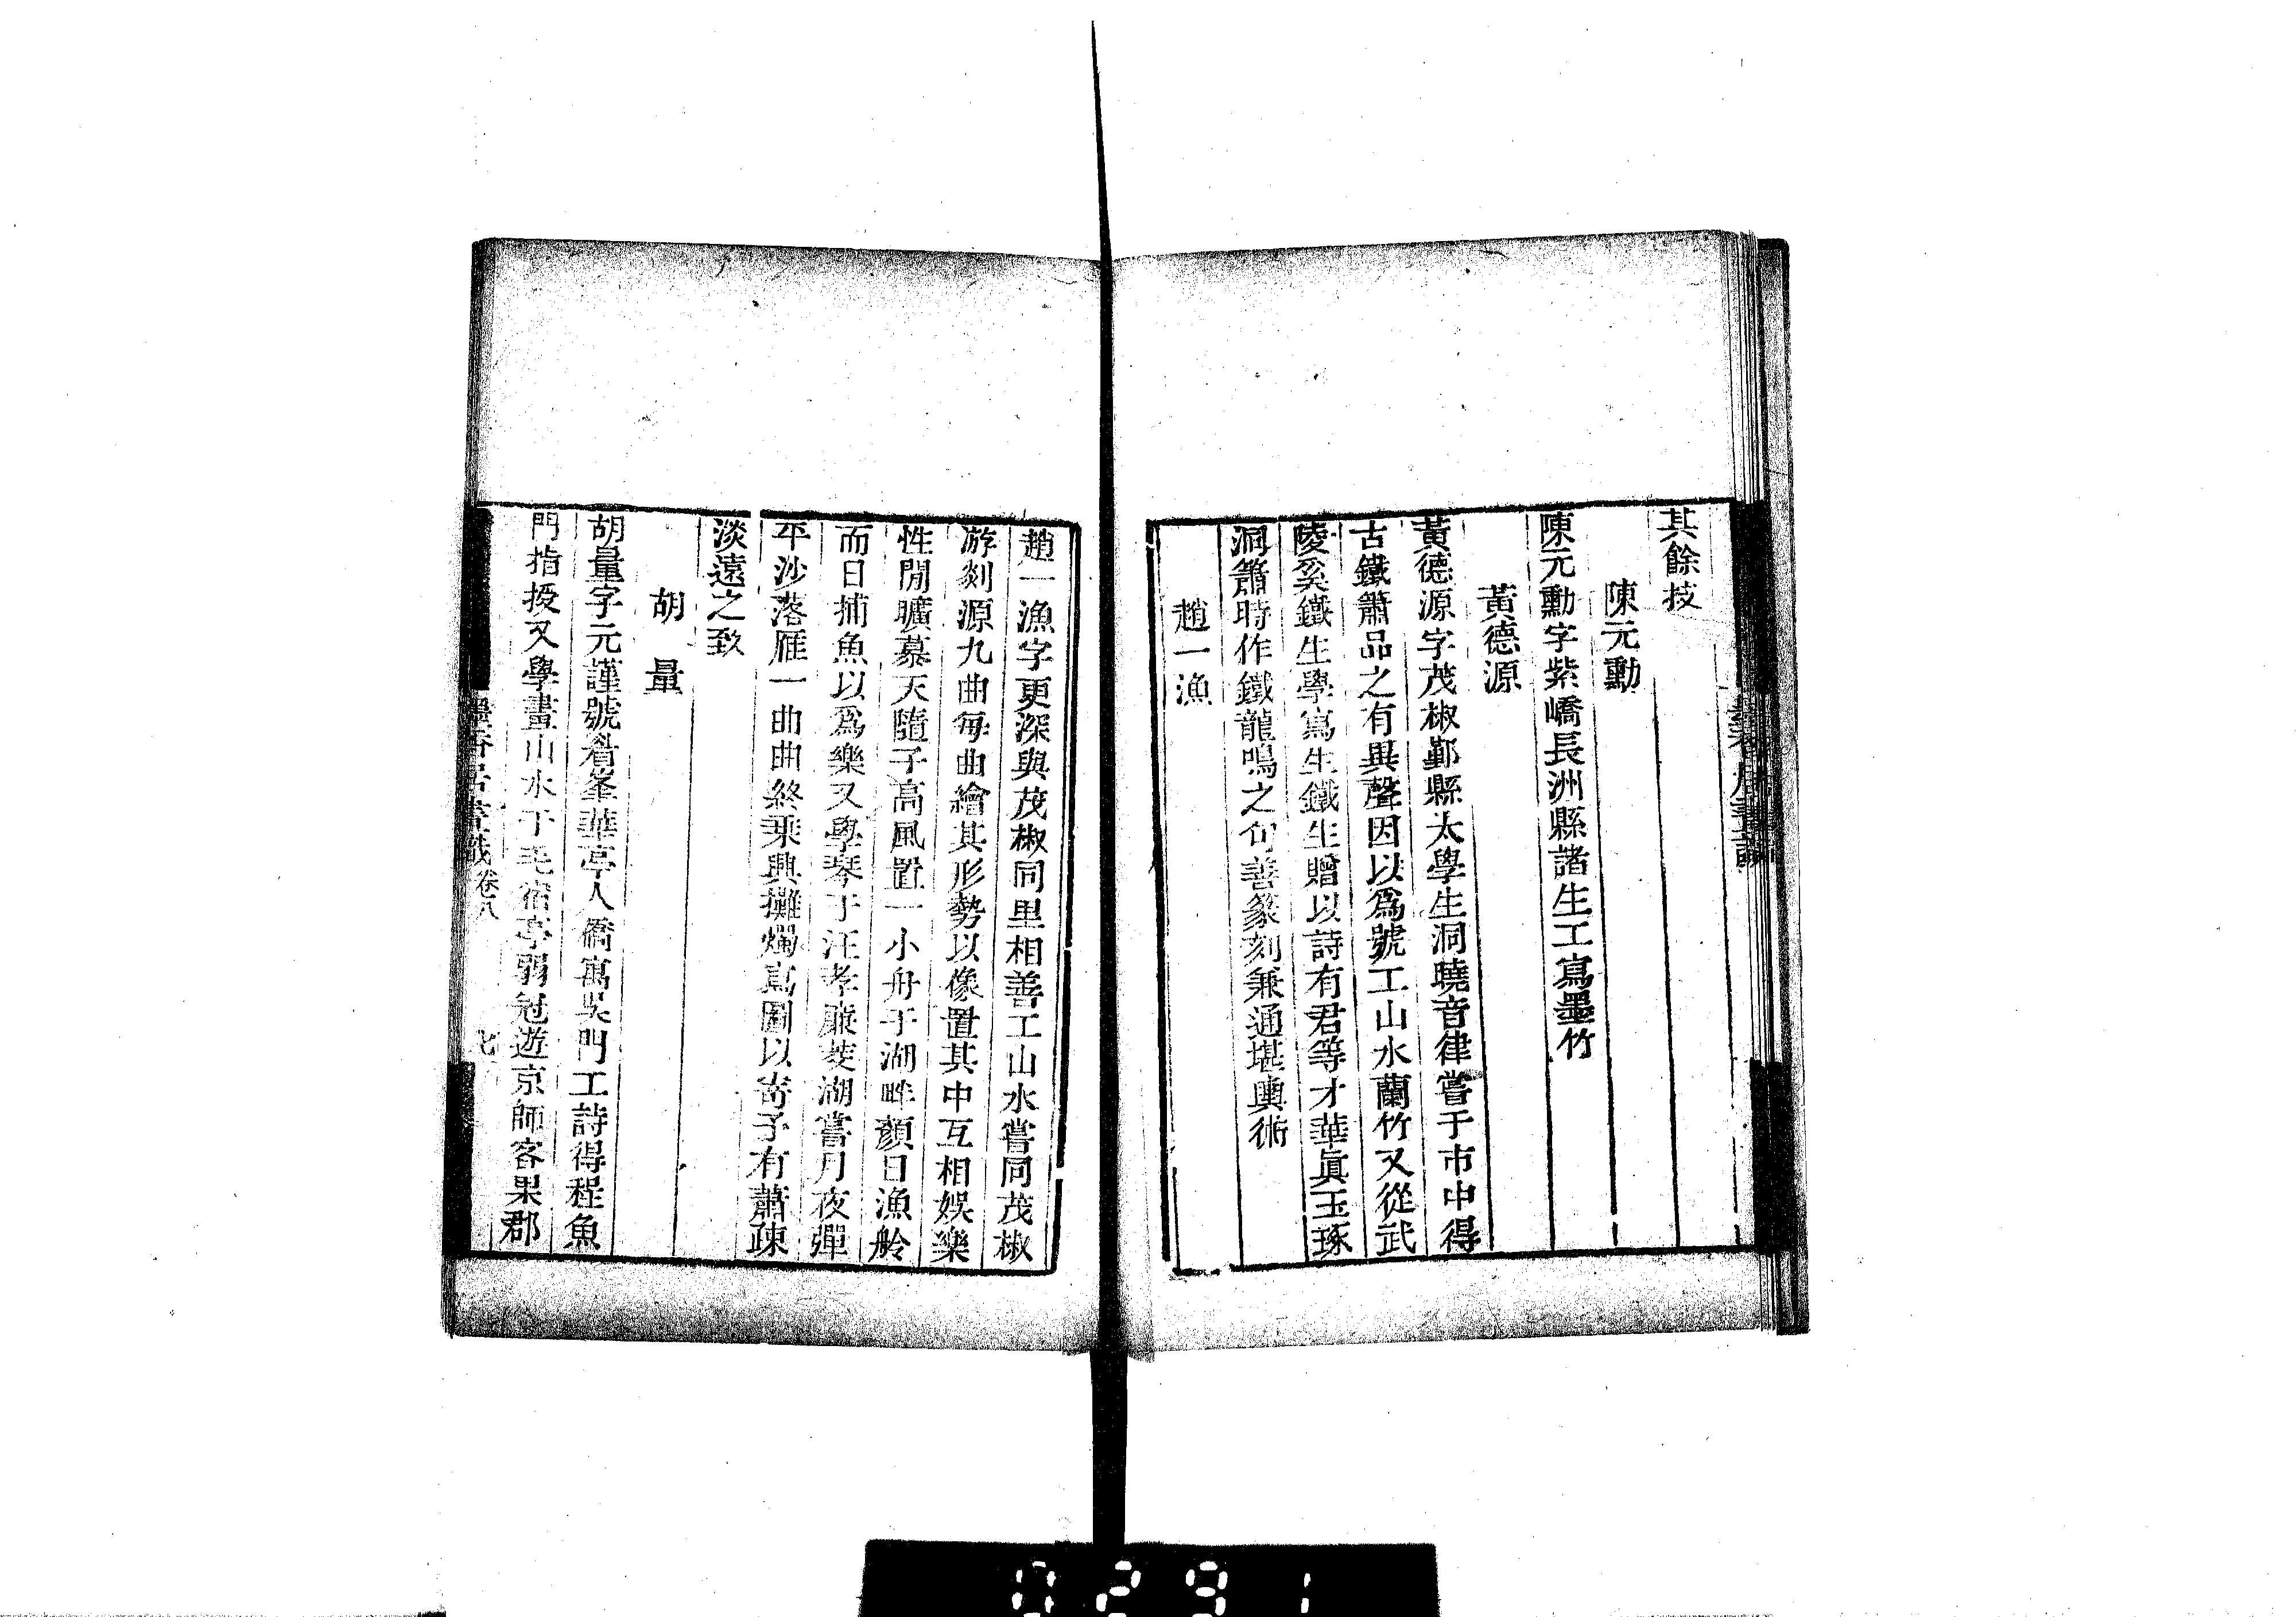 其餘技
陳元勳
陳元勳字紫嶠長洲縣諸生工寫墨竹
黃德源
黃德源字茂椒鄞縣太學生洞曉音律嘗于市中得
古鐵簫品之有異聲因以爲號工山水蘭竹又從武
陵奚鐵生學寫生鐵生贈以詩有君等才華眞玉琢
洞簫時作鐵龍鳴之句善篆刻兼通堪輿術
趙一漁
趙一漁字更深與茂椒同里相善工山水嘗同茂椒
游剡源九曲每曲繪其形勢以像置其中互相娛樂
性閒曠慕天隨子高風置一小舟于湖畔顏曰漁舲
而日捕魚以爲樂又學琴于汪孝廉菱湖嘗月夜彈
平沙落雁一曲曲終乘興攤燭寫圖以寄予有蕭疎
淡遠之致
胡量
胡量字元謹號眉峯華亭人僑寓吳門工詩得程魚
門指授又學畫山水于毛宿亭弱冠遊京師客果郡
墨香居畫識 卷八 七
0291